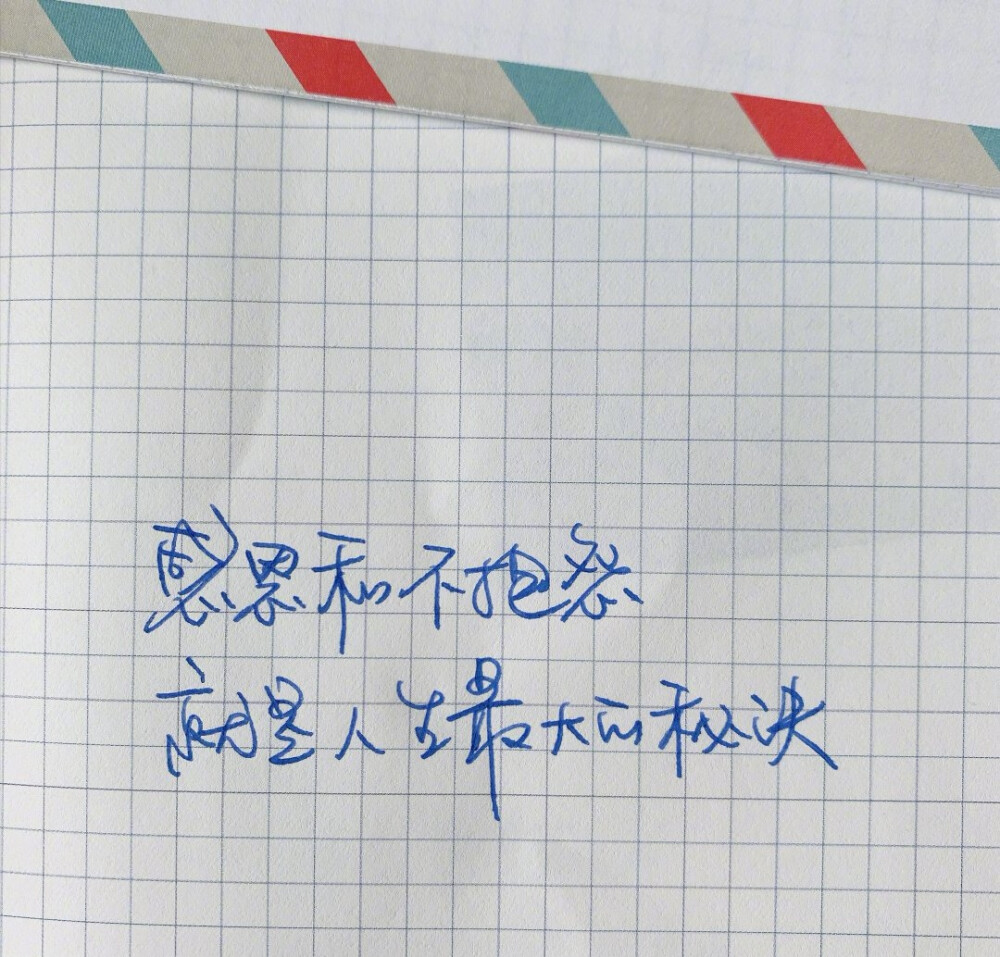 感恩和不抱怨
就是人生最大的秘诀